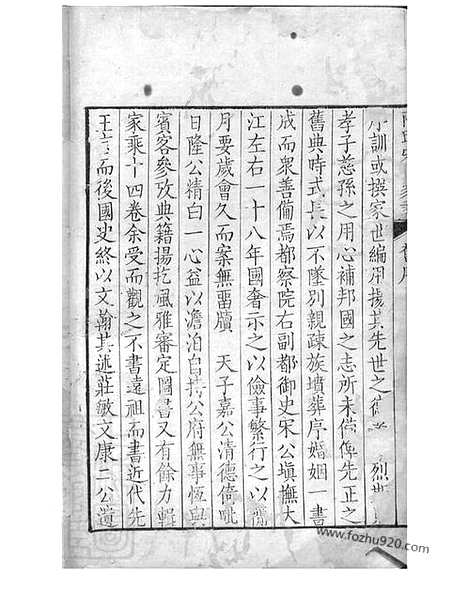 訓或撰家世編用揚其先世之 烈世
孝子慈孫之用心補邦國之志所未備俾先正之
舊典時式長以不墜別親疎族墳葬序婚姻一書
成而衆善備焉都察院右副都御史宋公塡撫大
江左右一十八年國奢示之以儉事繁行之以簡
月要歲會久而案無畱牘 天子嘉公清德倚毗
日隆公精白一心益以澹泊自持公府無事恆與
賓客參攷典籍揚扢風雅審定圖書又有餘力輯
家乘十四卷余受而觀之不書遠祖而書近代先
王言而後國史終以文翰其述莊敏文康二公遺
www.fozhu920.com